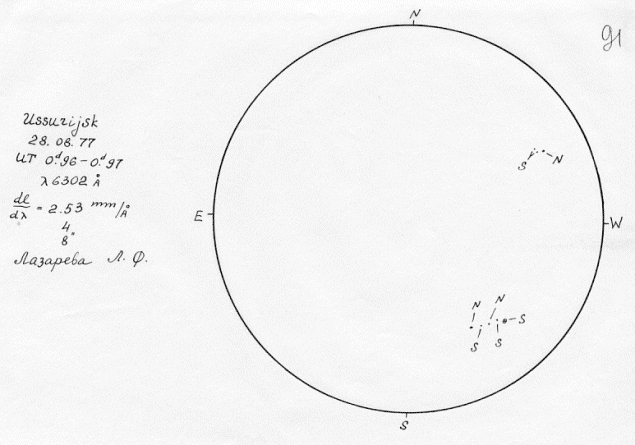 N
91
Ussurijsk
28.06.77
UT 0.ᵈ96-0.ᵈ97
λ 6302 Å
dl/dλ = 2.53 mm/Å
4
8"
Лазарева Л. Ф.
S N
E
W
N N
S
S S
S